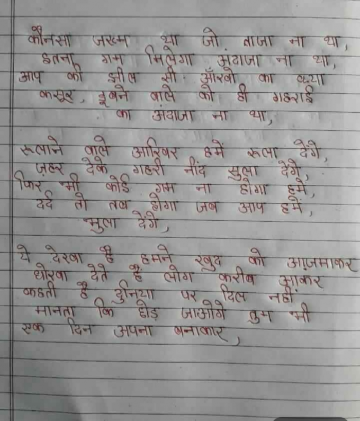 कौनसा जख्म था जो ताजा ना था,
इतना गम मिलेगा अंदाजा ना था,
आप की झील सी आँखों का क्या
कसूर, डूबने वाले को ही गहराई
का अंदाजा ना था,
रूलाने वाले आखिर हमें रूला देंगे,
जहर देके गहरी नींद सुला देंगे,
फिर भी कोई गम ना होगा हमें,
दर्द तो तब होगा जब आप हमें,
भुला देंगे,
ये देखा है हमने खुद को आज़माकर
धोखा देते है लोग करीब आकर
कहती है दुनिया पर दिल नहीं
मानता कि छोड़ जाओगे तुम भी
एक दिन अपना बनाकर,